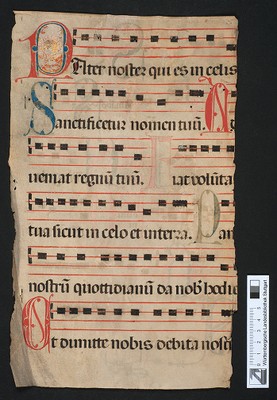 Pater noster qui es in celis
Sanctificetur nomen tuū. A
ueniat regnū tuū. Fiat volūta
tua sicut in celo et in terra. Pan
nostrū quottidianū da nob̄ hodie
Et dimitte nobis debita nostr
Württembergische Landesbibliothek Stuttgart